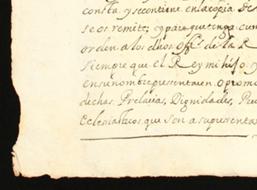 consta, y se contiene en la copia de
se os remite; y para que tenga cum
orden a los dhos Offs. de la R
siempre que el Rey mi hijo, y
en su nombre presentaren o prom
dechas, Prelacias, Dignidades,
Eclesiasticos que son a su presenta